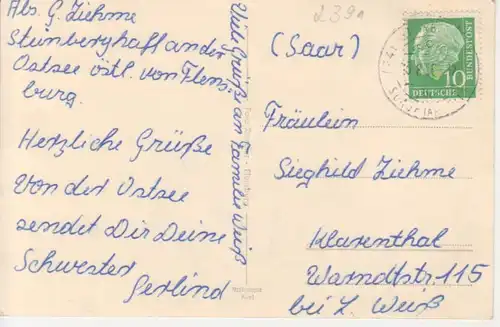 Abs. G. Ziehme
Steinberghaff an der
Ostsee östl. von Flens-
burg.
Herzliche Grüße
Von der Ostsee
sendet Dir Deine
Schwester
Gerlind
Viele Grüße an Familie Weiß
239a
(Saar)
Fräulein
Sieghild Ziehme
Klarenthal
Warndtstr. 115
bei L. Weiß
10
DEUTSCHE
BUNDESPOST